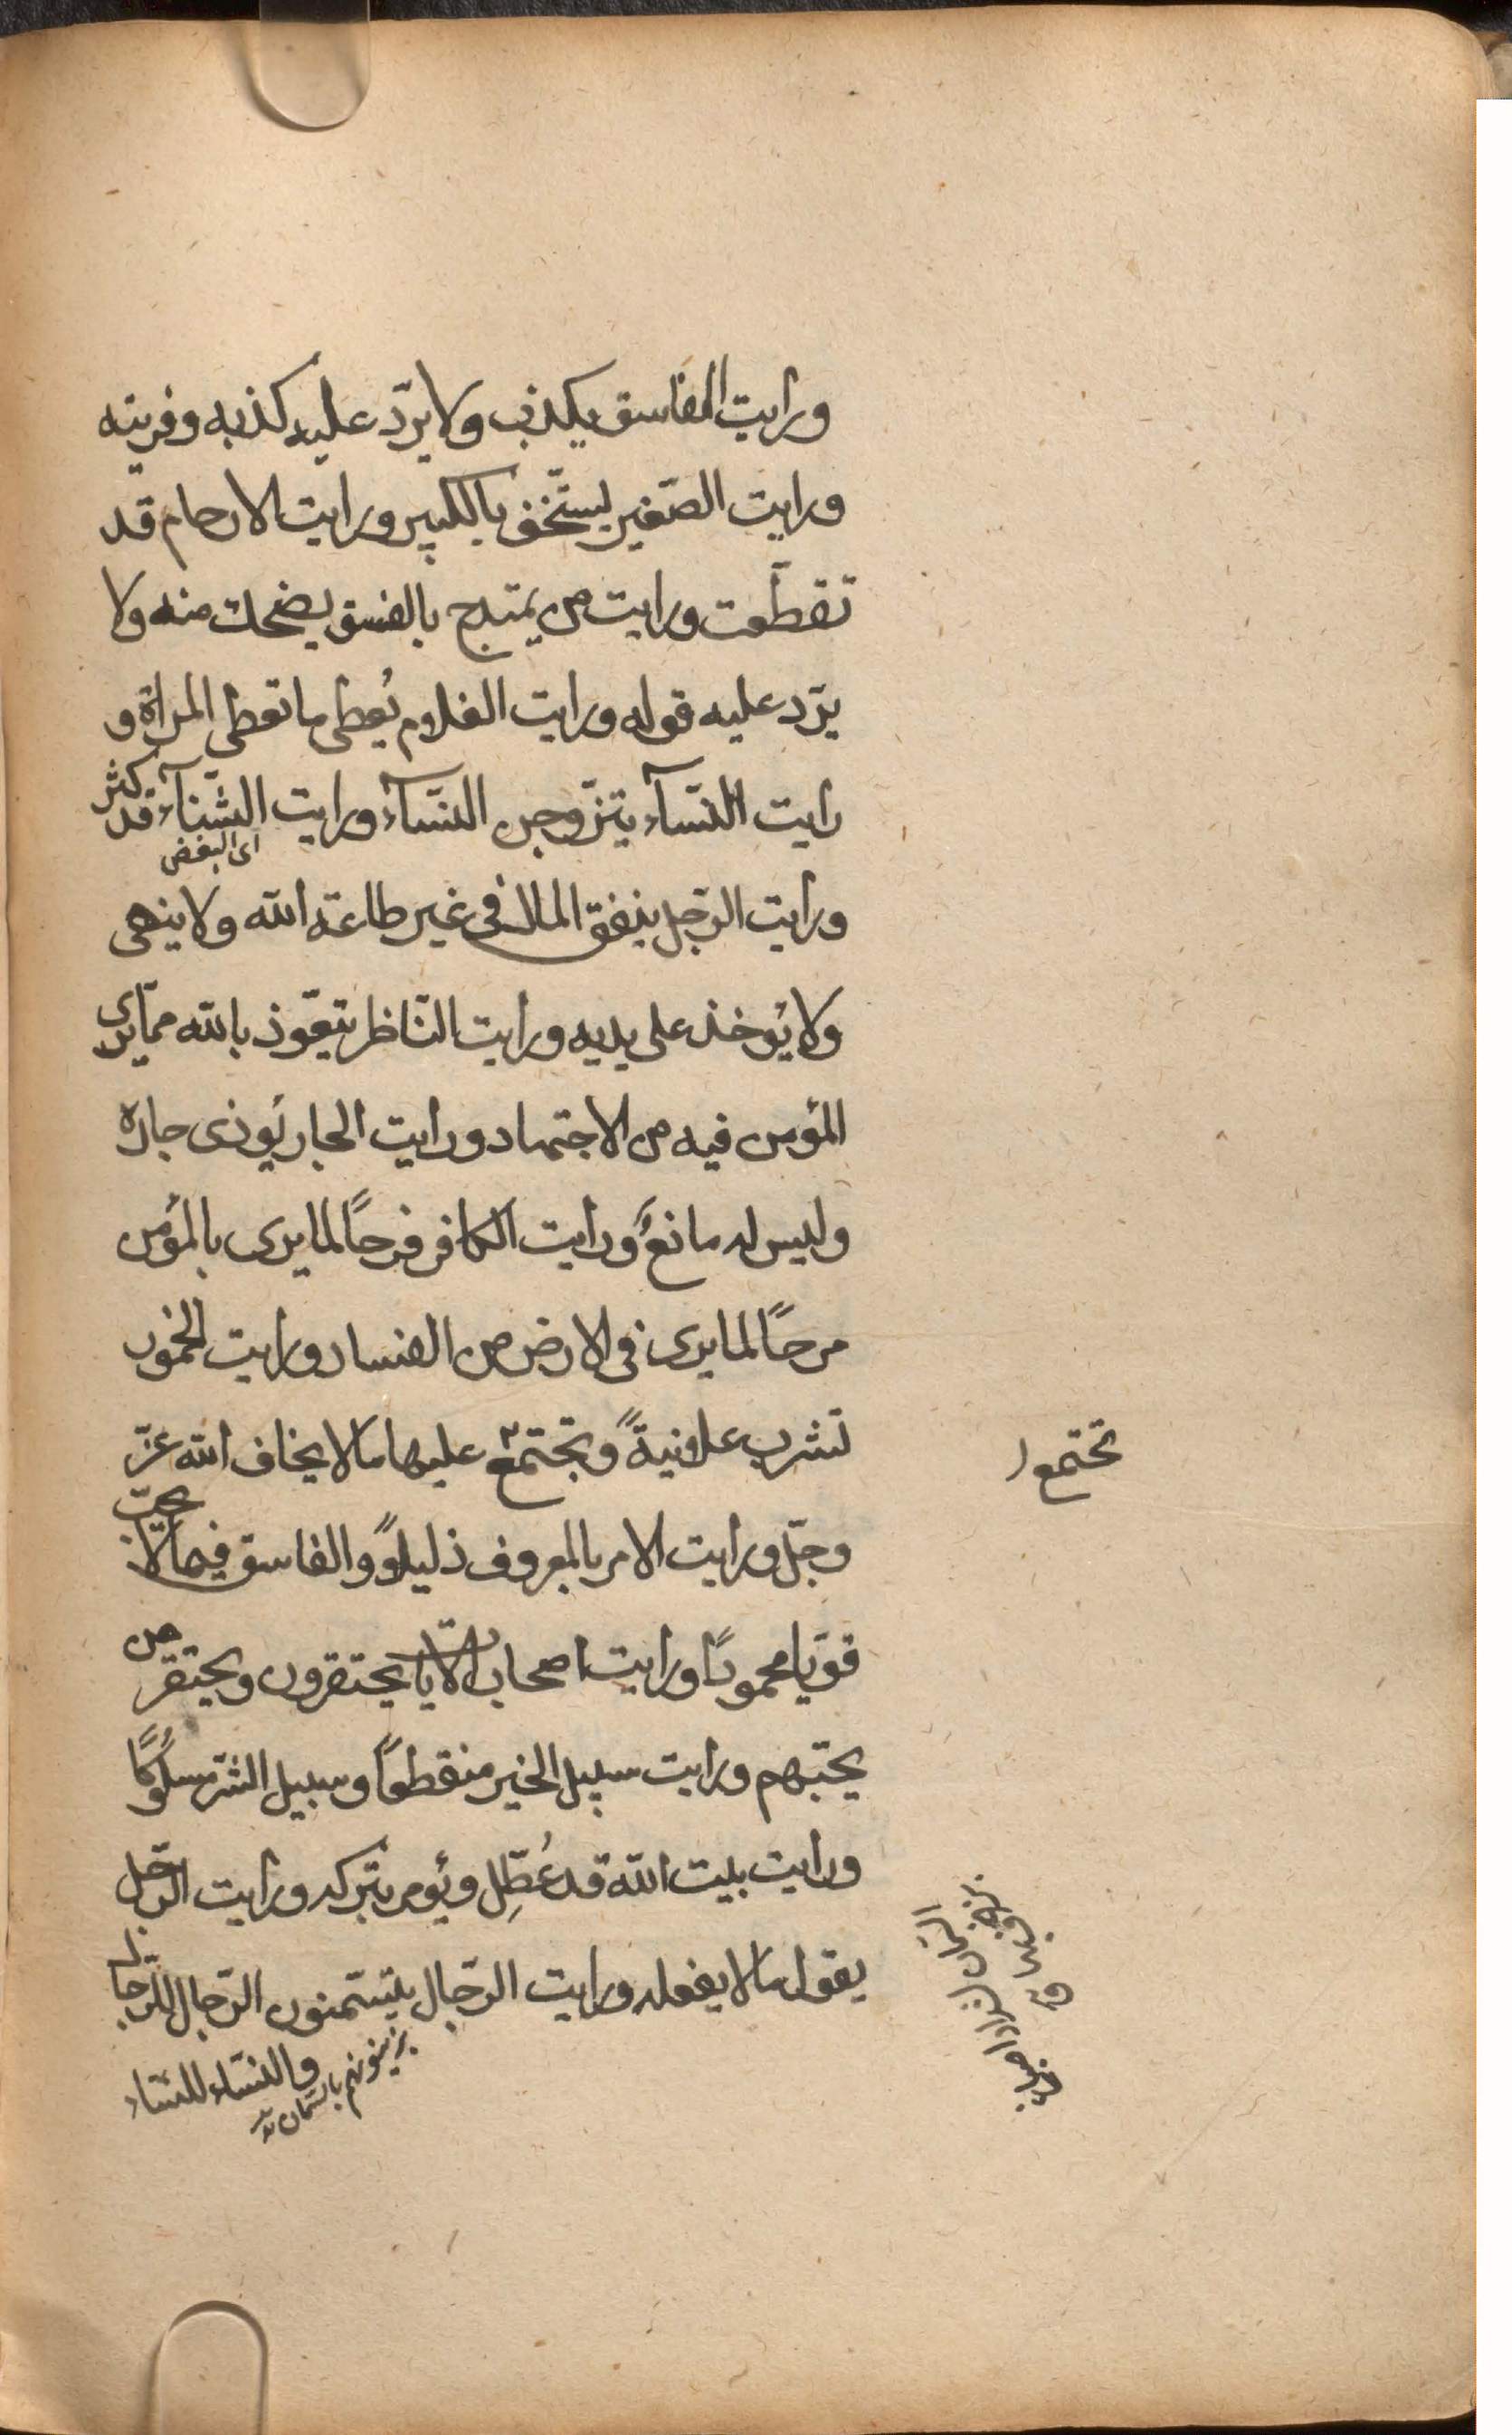 ورايت الفاسق يكذب ولا يردّ عليه كذبه وفريته
ورايت الصّغير يستخفّ بالكبير ورايت الارحام قد
تقطّعت ورايت من يمتدح بالفسق يضحك منه ولا
يردّ عليه قوله ورايت الغلام يُعطى ما تعطى المراة و
رايت النّسآء يتزوجن النسّآء ورايت الشّنآء قد كثر
اى البغض
ورايت الرّجل ينفق المال فى غير طاعة الله ولا ينهى
ولا يؤخذ على يديه ورايت النّاظر يتعوّذ بالله ممّا يرى
المؤمن فيه من الاجتهاد ورايت الجار يؤذى جاره
وليس له مانعٌ ورايت الكافر فرحًا لما يرى بالمؤمن
مرحًا لما يرى فى الارض من الفساد ورايت الخمور
تشرب علانيةً وتجتمع عليها ما لا يخاف الله عزّ
تجتمع
وجلّ ورايت الامر بالمعروف ذليلاً والفاسق فيما لا يحبّ
قويّا محمودًا ورايت اصحاب الآيات يحتقرون ويحتقر من
يحبّهم ورايت سبيل الخير منقطعًا وسبيل الشرّ مسلوكًا
ورايت بيت الله قد عُطِّل ويؤمر بتركه ورايت الرّجل
يقول ما لا يفعله ورايت الرّجال يتسّمنون الرّجال للرّجال
والنسّاء للنسّاء